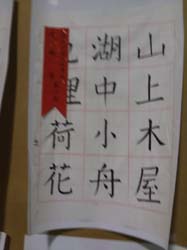 山上木屋
湖中小舟
里荷花